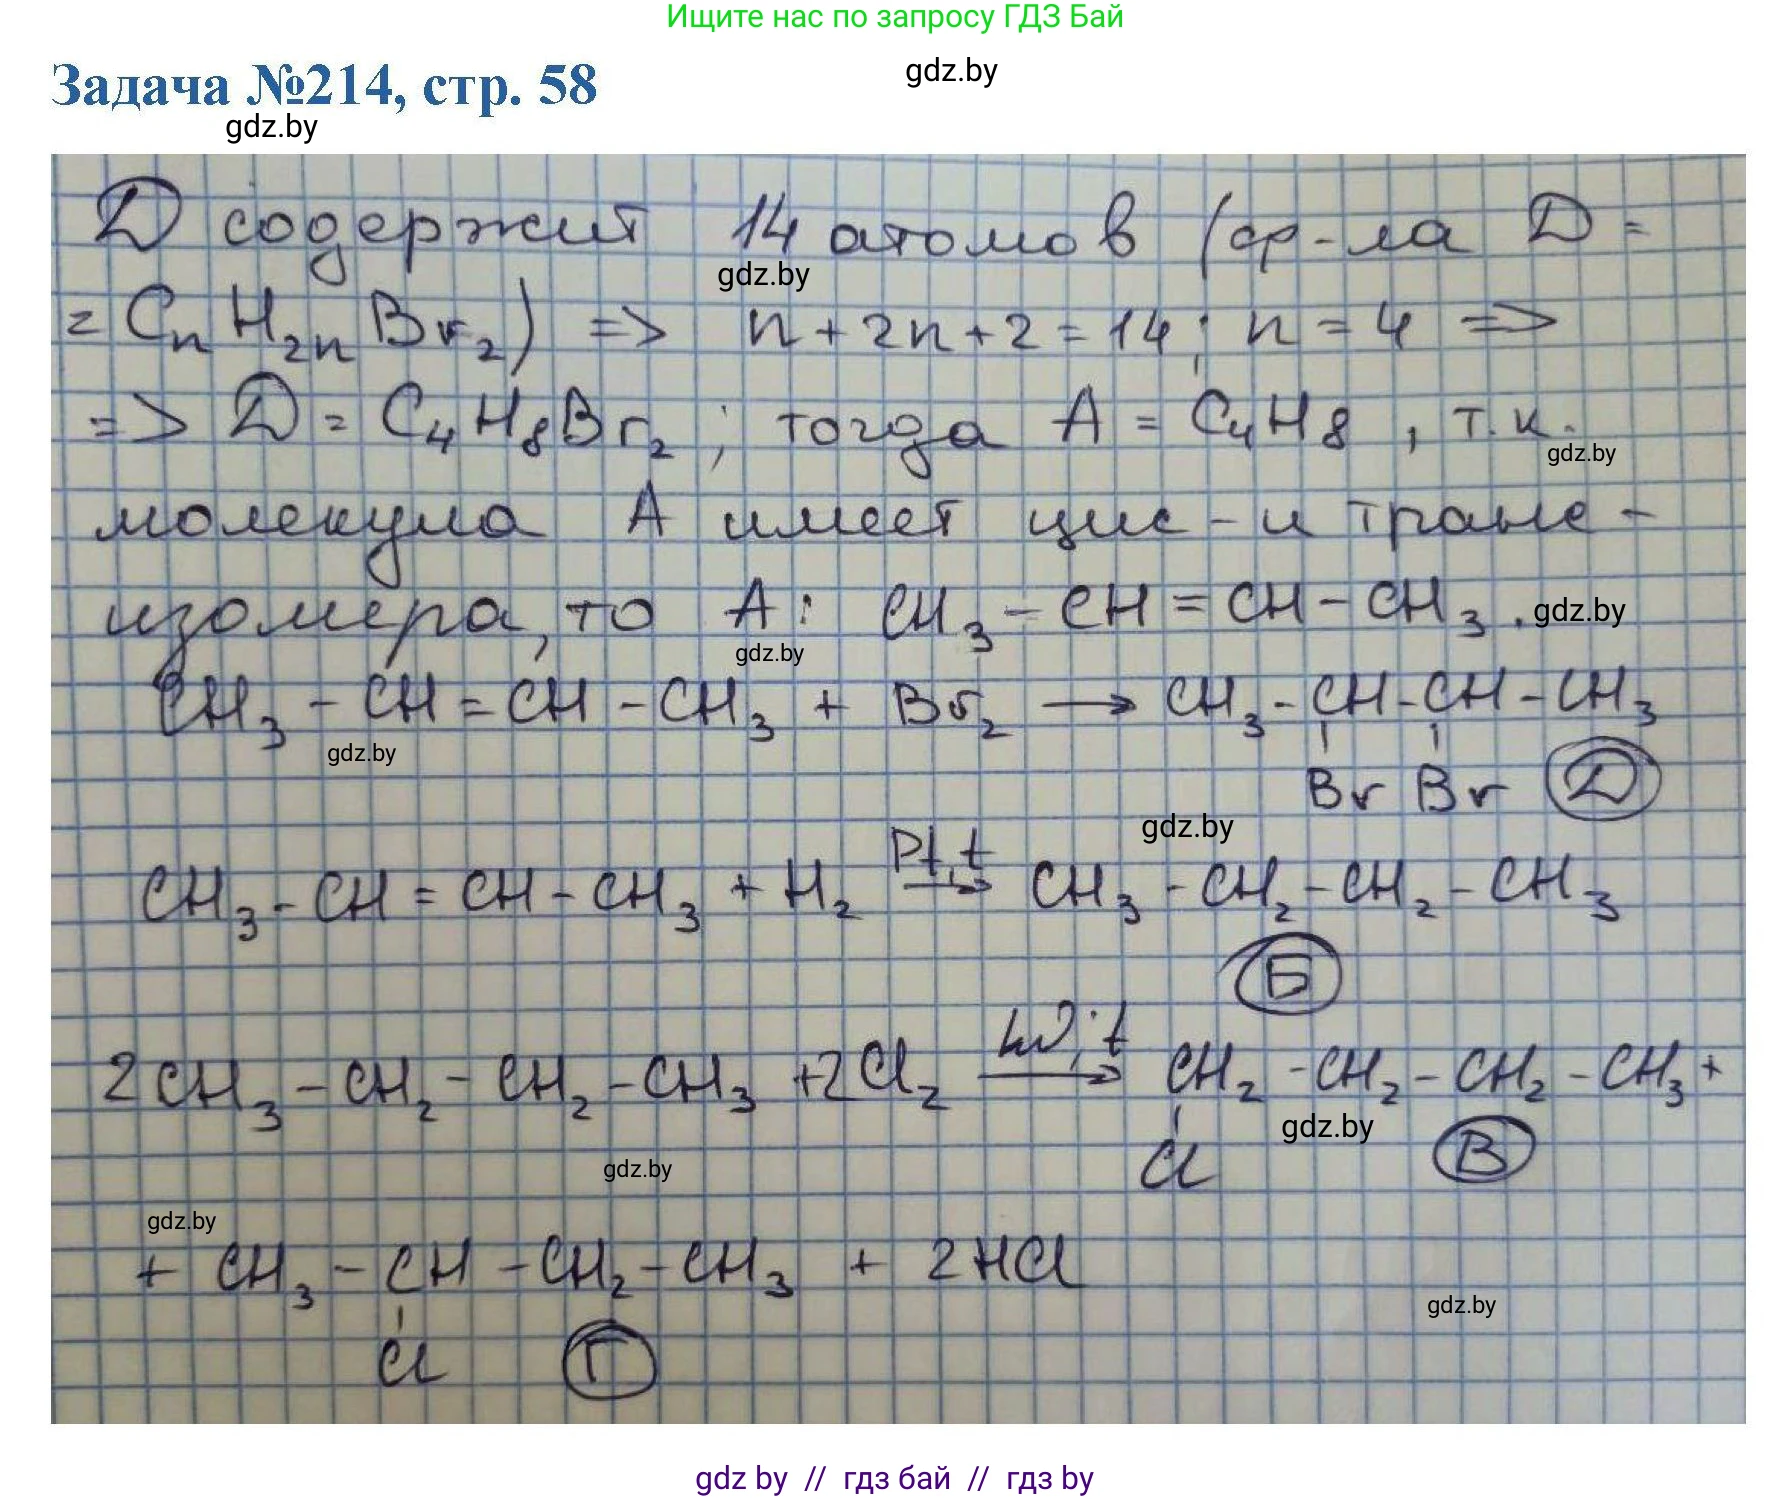 Ищите нас по запросу ГДЗ Бай
Задача №214, стр. 58
gdz.by
gdz.by
D содержит 14 атомов (ф-ла D =
gdz.by
= CₙH₂ₙBr₂) => n + 2n + 2 = 14; n = 4 =>
=> D = C₄H₈Br₂; тогда A = C₄H₈, т.к.
gdz.by
молекула A имеет цис- и транс-
изомера, то A: CH₃ – CH = CH – CH₃.
gdz.by
gdz.by
CH₃ – CH = CH – CH₃ + Br₂ → CH₃ – CH – CH – CH₃
gdz.by
Br Br D
gdz.by
Pt, t
CH₃ – CH = CH – CH₃ + H₂ → CH₃ – CH₂ – CH₂ – CH₃
Б
hν, t
2CH₃ – CH₂ – CH₂ – CH₃ + 2Cl₂ → CH₂ – CH₂ – CH₂ – CH₃ +
gdz.by
Cl В
gdz.by
gdz.by
+ CH₃ – CH – CH₂ – CH₃ + 2HCl
gdz.by
Cl Г
gdz by // гдз бай // гдз by